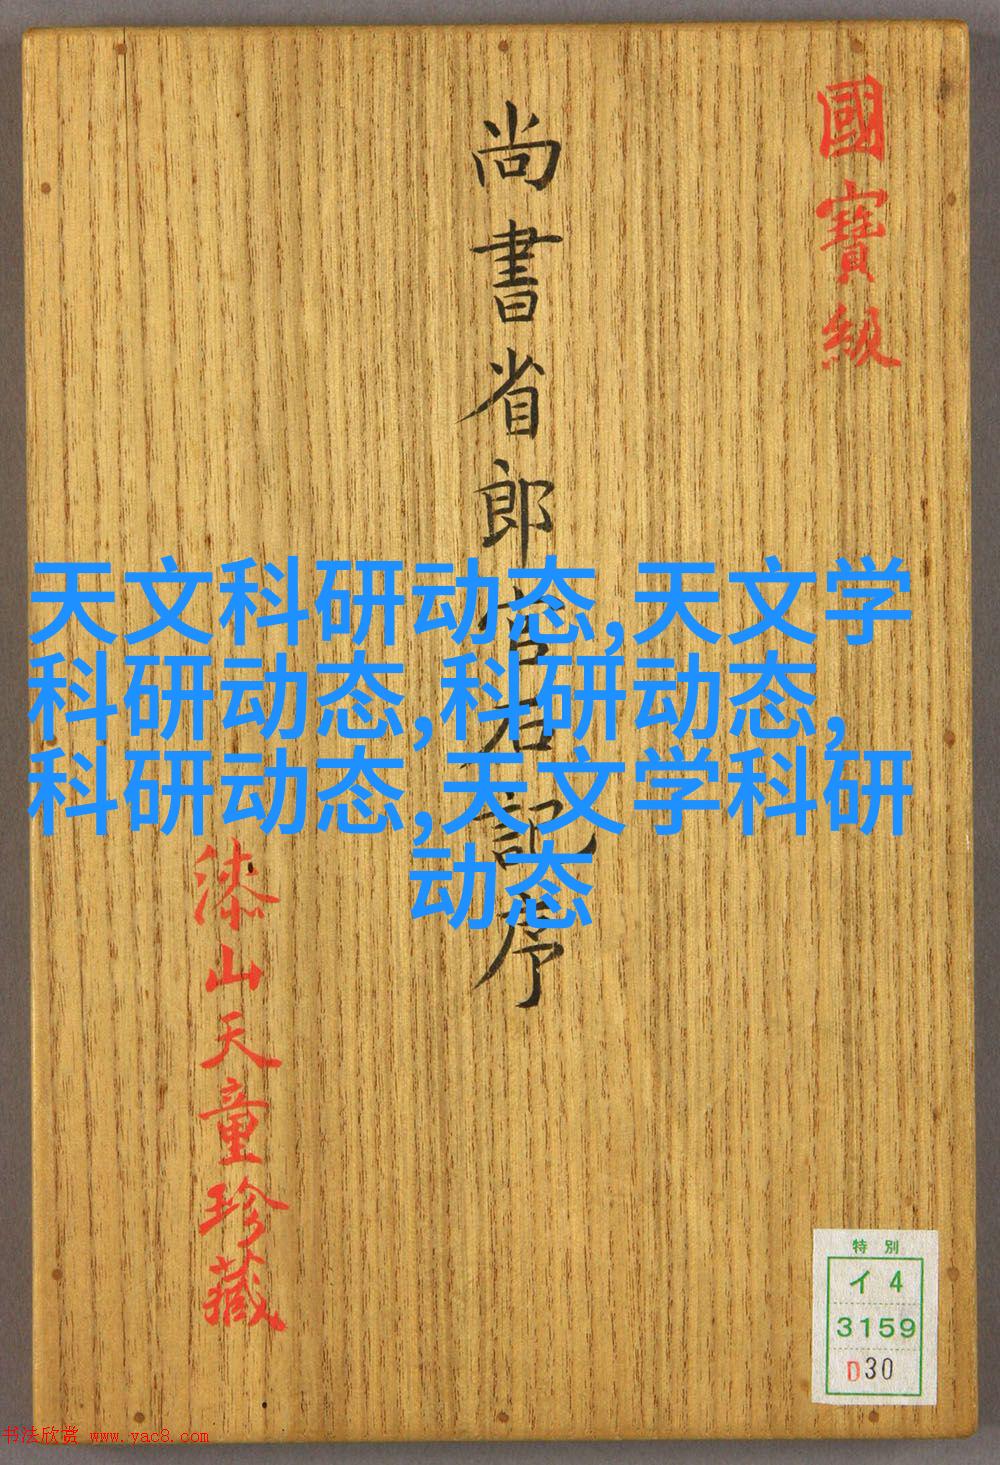 國寶級
尚書省郎官石記序
漆山天童珍藏
天文科研动态,天文学
科研动态,科研动态,
科研动态,天文学科研
动态
特別
イ 4
3159
D30
书法欣赏 www.yac8.com